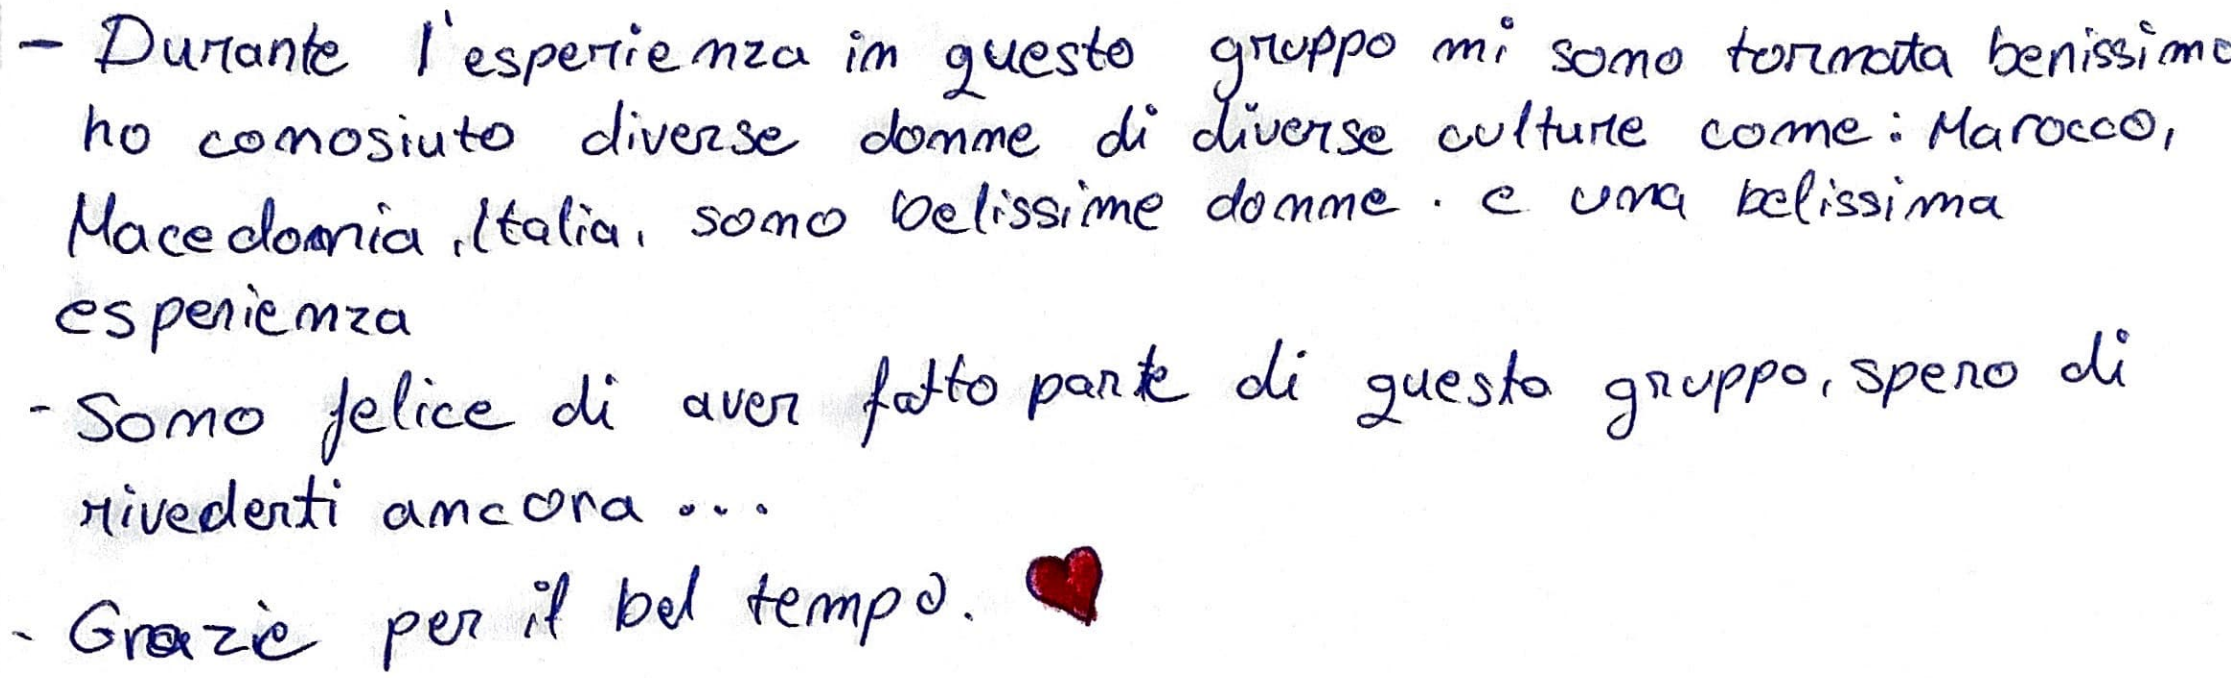 - Durante l'esperienza in questo gruppo mi sono tornata benissimo
ho conosiuto diverse donne di diverse culture come: Marocco,
Macedonia, Italia, sono belissime donne. e una belissima
esperienza
- Sono felice di aver fatto parte di questo gruppo, spero di
rivederti ancora...
- Grazie per il bel tempo. ❤